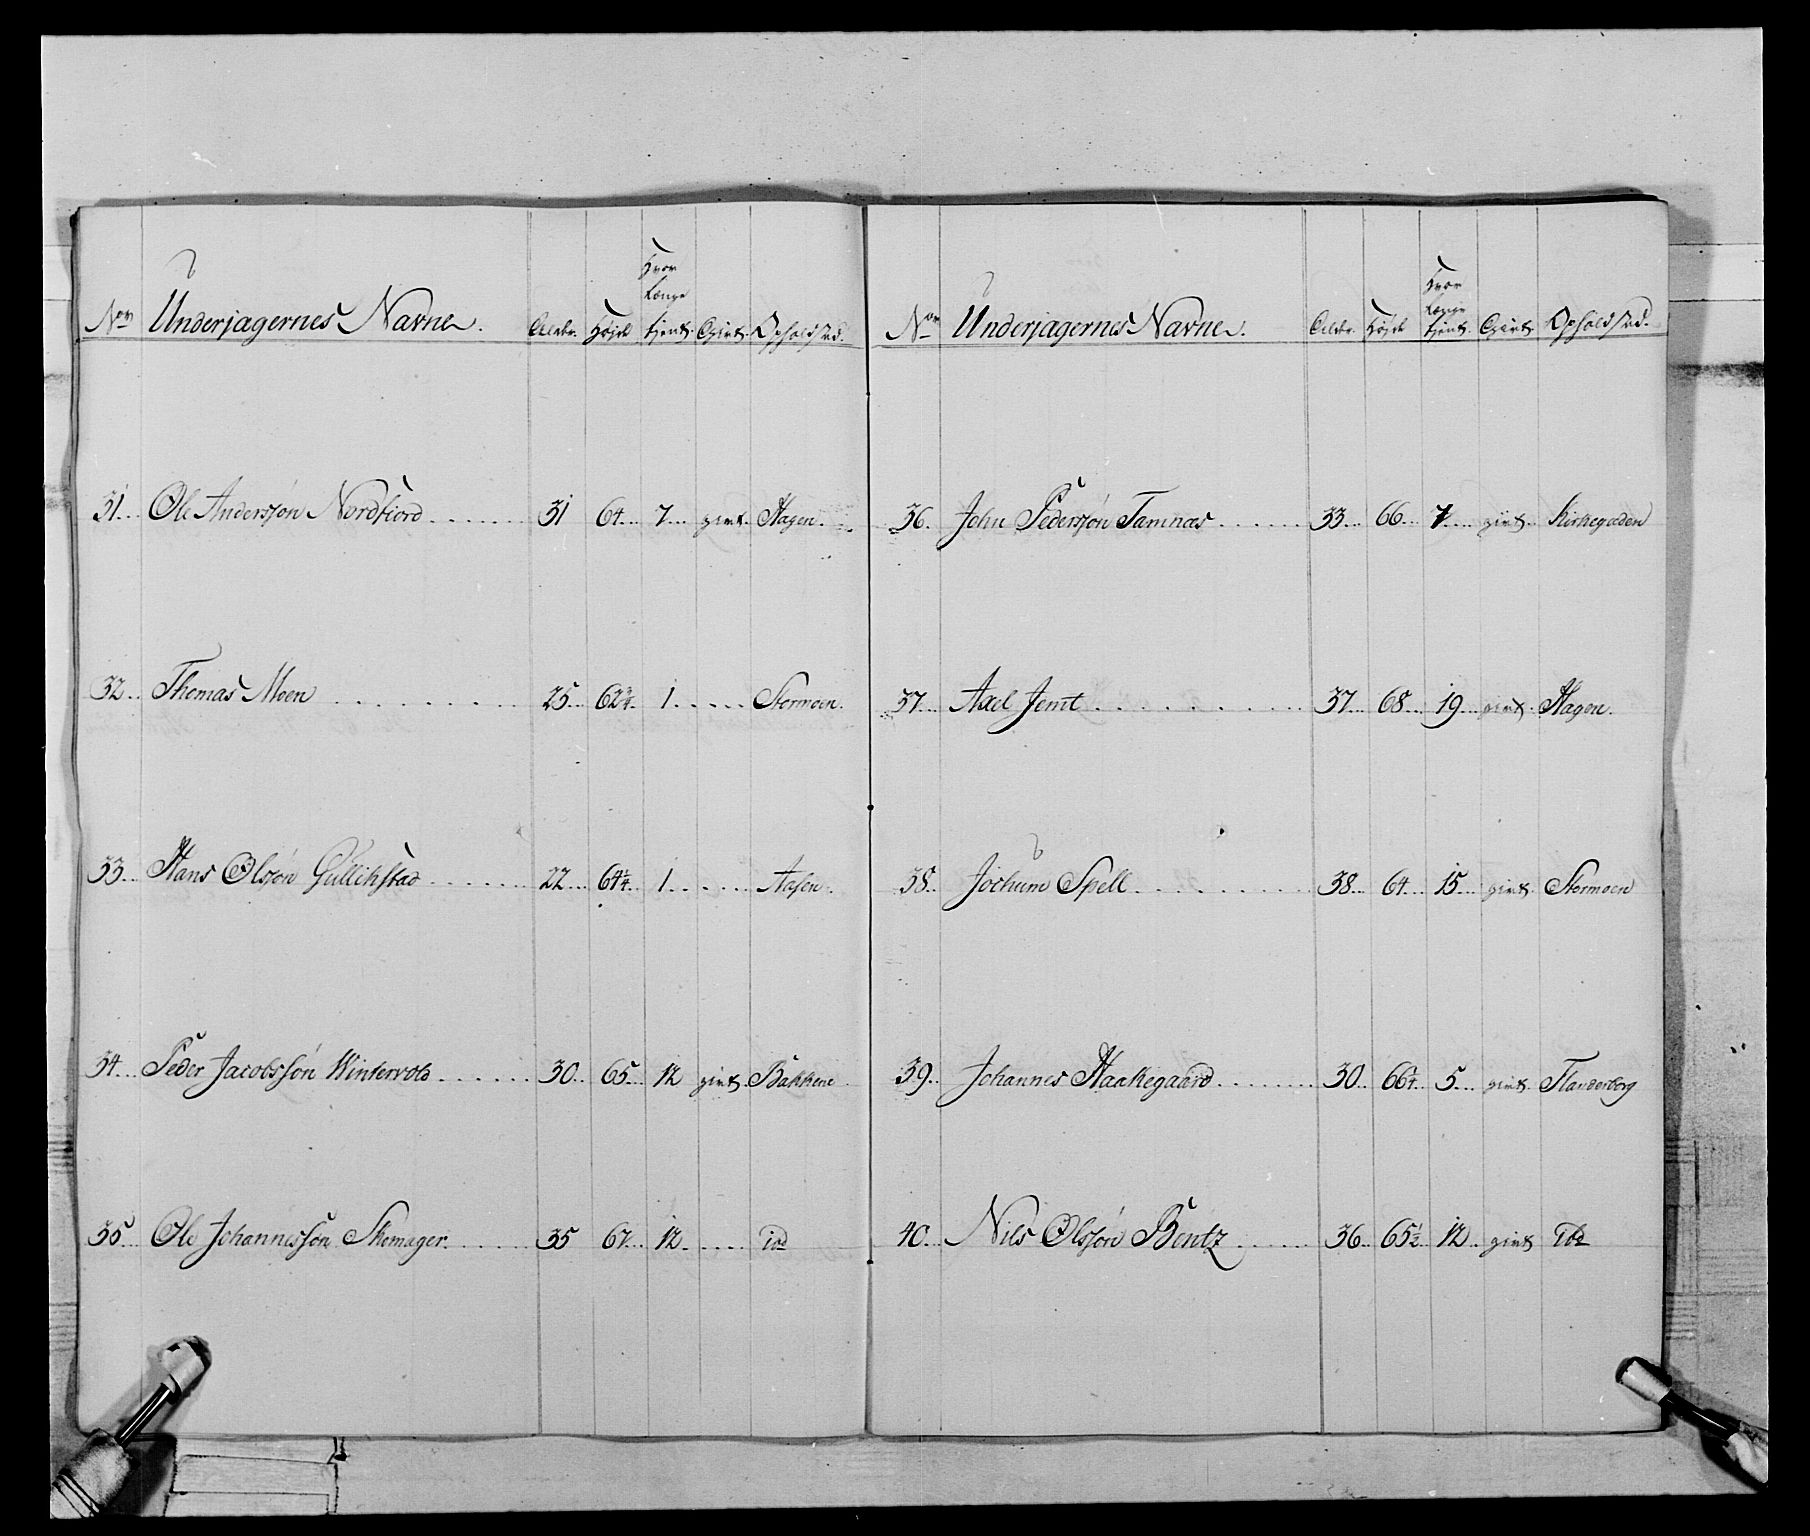 Nor Underjagernes Navne. Alder. Højde Hvor Længe tjent. Givt. Opholdsted.
31. Ole Andersøn Nordfiord 31 64 7 givt. Hagen.
32. Thomas Moen 25 62¾ 1 Stormoen.
33. Hans Olsøn Gullichstad 22 64¼ 1 Aasen.
34. Peder Jacobssøn Wintervold 30 65 12 givt. Bakkene
35. Ole Johannessøn Skomager. 35 67 12
Nor Underjagernes Navne. Alder. Højde Hvor Længe tjent. Givt. Opholdsted.
36. John Pedersøn Tamnæs 33 66 7 givt. Kirkegaden
37. Axel Jemt 37 68 19 givt. Hagen.
38. Jochum Spell 38 64 15 givt. Stormoen
39. Johannes Haakegaard 30 66¼ 5 givt. Flanderborg
40. Nils Olsøn Bentz 36 65½ 12 givt